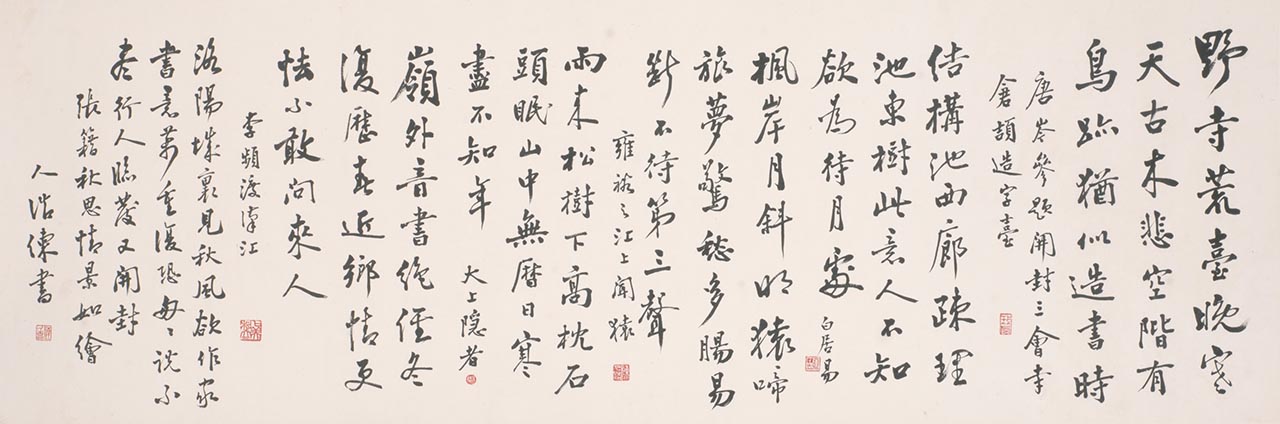 野寺荒臺晚寒
天古木悲空階有
鳥跡猶似造書時
唐岑參題開封三會寺
倉頡造字臺
結構池西廊疎理
池東樹此意人不知
欲為待月處 白居易
楓岸月斜明猿啼
旅夢驚愁多腸易
斷不待第三聲
雍裕之江上聞猿
來松樹下高枕石
頭眠山中無曆日寒
盡不知年 太上隱者
嶺外音書絕經冬
復歷春近鄉情更
怯不敢問來人
李頻渡漢江
洛陽城裏見秋風欲作家
書意萬重復恐匆匆說不
盡行人臨發又開封
張籍秋思情景如繪
人 書